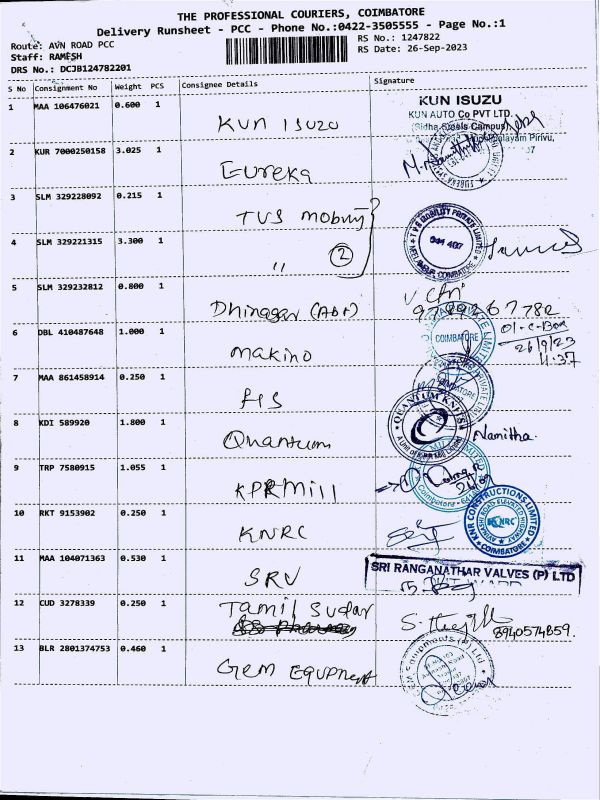 THE PROFESSIONAL COURIERS, COIMBATORE
Delivery Runsheet - PCC - Phone No.:0422-3505555 - Page No.:1
Route: AVN ROAD PCC
RS No.: 1247822
Staff: RAMESH
RS Date: 26-Sep-2023
DRS No.: DCJB124782201
S No Consignment No Weight PCS Consignee Details Signature
1 MAA 106476021 0.600 1 KUN ISUZU
KUN ISUZU
KUN AUTO Co PVT LTD.
(Sidha Steels Campus)
2 KUR 7000250158 3.025 1 Eureka
3 SLM 329228092 0.215 1 TVS mobility
TVS MOBILITY PRIVATE LIMITED
NEELAMBUR, COIMBATORE
4 SLM 329221315 3.300 1 " 2
5 SLM 329232812 0.800 1 Dhinagar (Abt)
6 DBL 410487648 1.000 1 makino
COIMBATORE
26/9/23
11.37
7 MAA 861458914 0.250 1 FIS
8 KDI 589920 1.800 1 Quantum
QUANTUM KNITS
Namitha.
9 TRP 7580915 1.055 1 KPRMill
Coimbatore
10 RKT 9153902 0.250 1 KNRC
KNR CONSTRUCTIONS LIMITED
KNRC
COIMBATORE
11 MAA 104071363 0.530 1 SRV
SRI RANGANATHAR VALVES (P) LTD
12 CUD 3278339 0.250 1 Tamil Sudar
8940574859.
13 BLR 2801374753 0.460 1 Gem Equpment